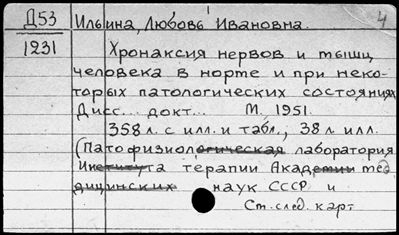 Д53 Ильина, Любовь Ивановна. 4
1231 Хронаксия нервов и мышц
человека в норме и при неко-
торых патологических состояниях
Дисс... докт... М, 1951.
358 л. с илл. и табл., 38 л. илл.
(Патофизиологическая лаборатория
Института терапии Академии мед
ицинских наук СССР и
См. след. карт